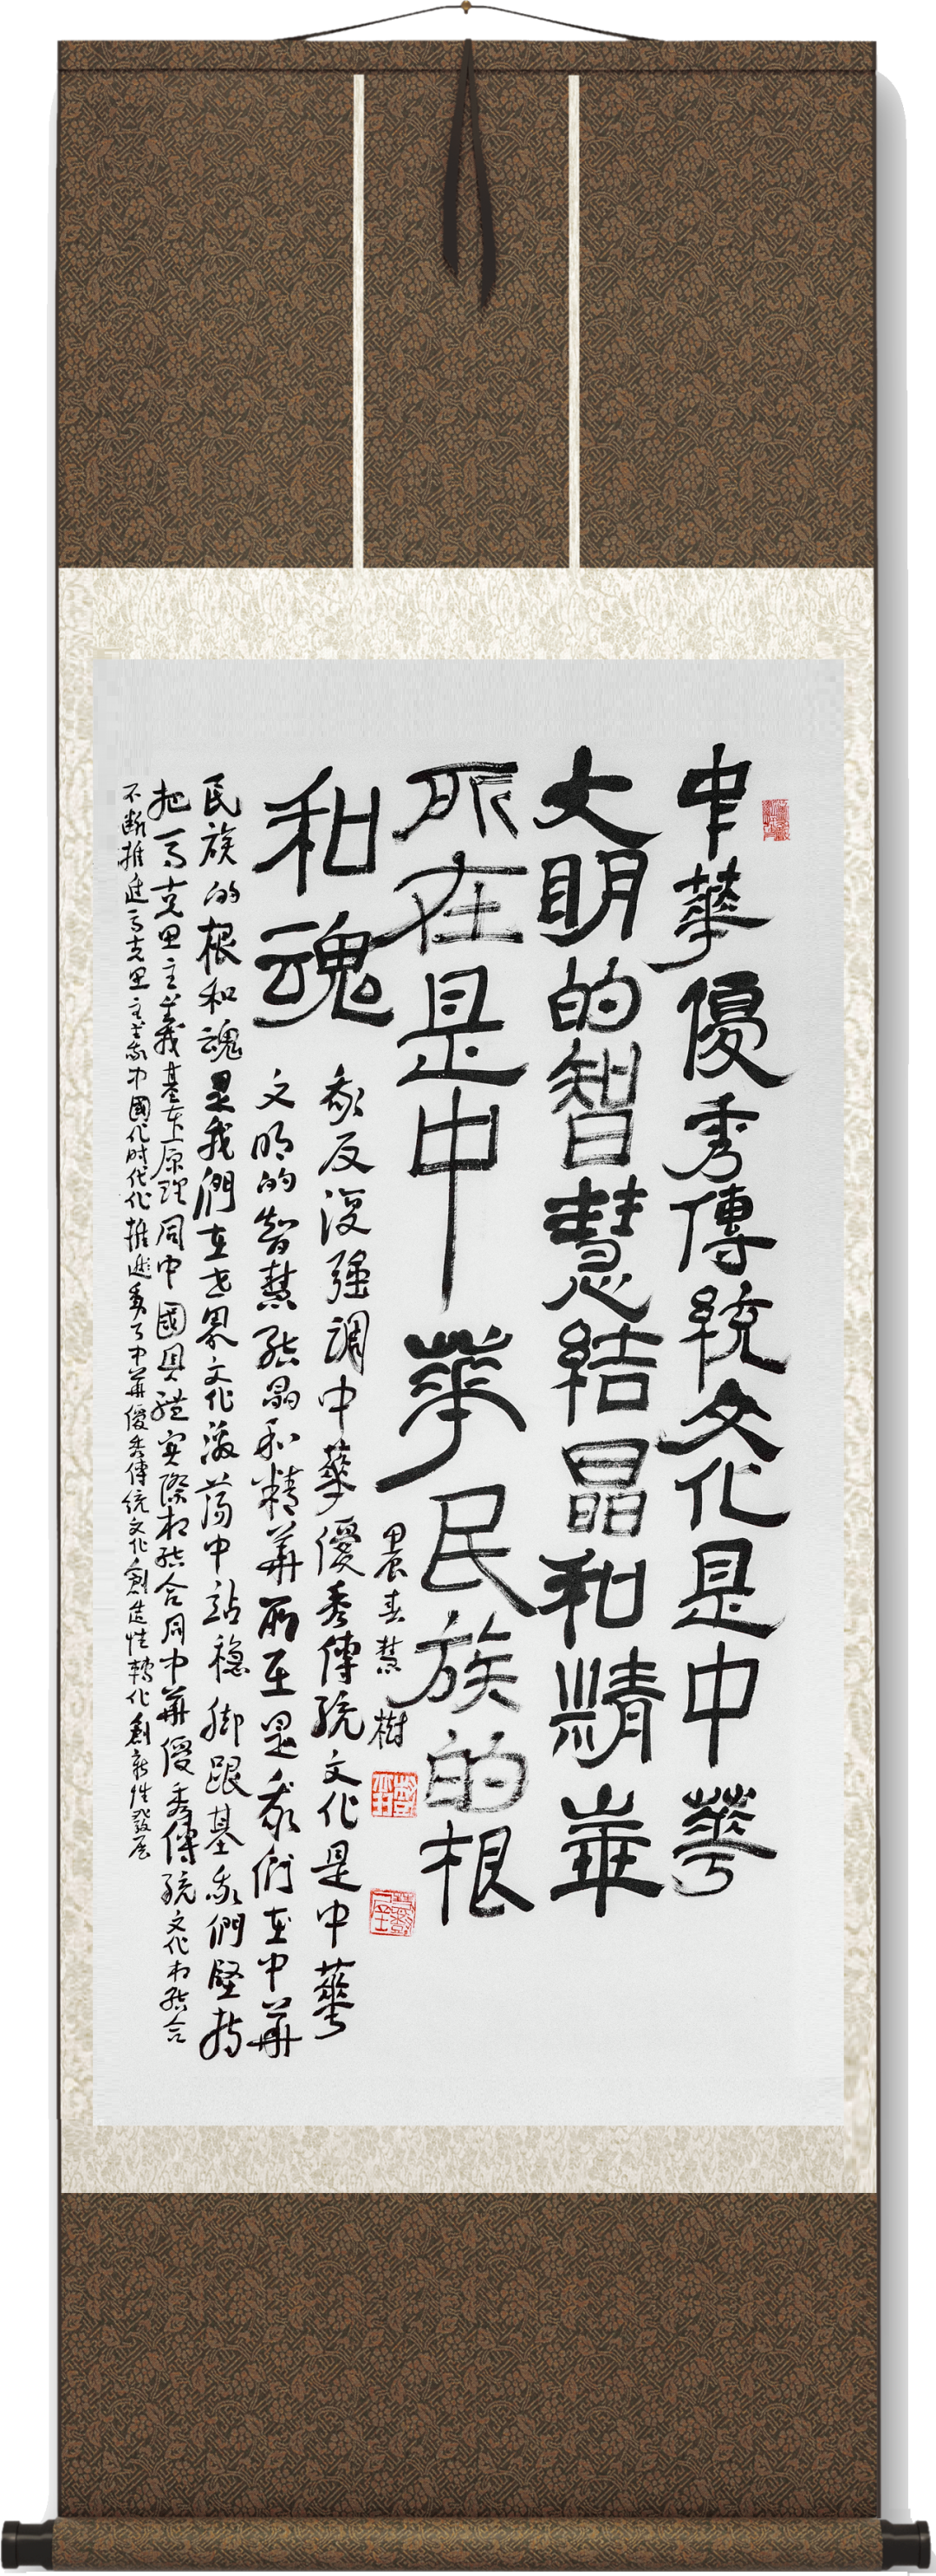 中華優秀傳統文化是中華
文明的智慧結晶和精華
所在是中華民族的根
和魂
我反復强調中華優秀傳統文化是中華
文明的智慧結晶和精華所在是我們在中華
民族的根和魂是我們在世界文化激蕩中站穩脚跟基我們堅持
把馬克思主義基本原理同中國具體实際相結合同中華優秀傳統文化相結合
不断推進馬克思主義中國化时代化推進了中華優秀傳統文化創造性轉化創新性發展
春慧
樹